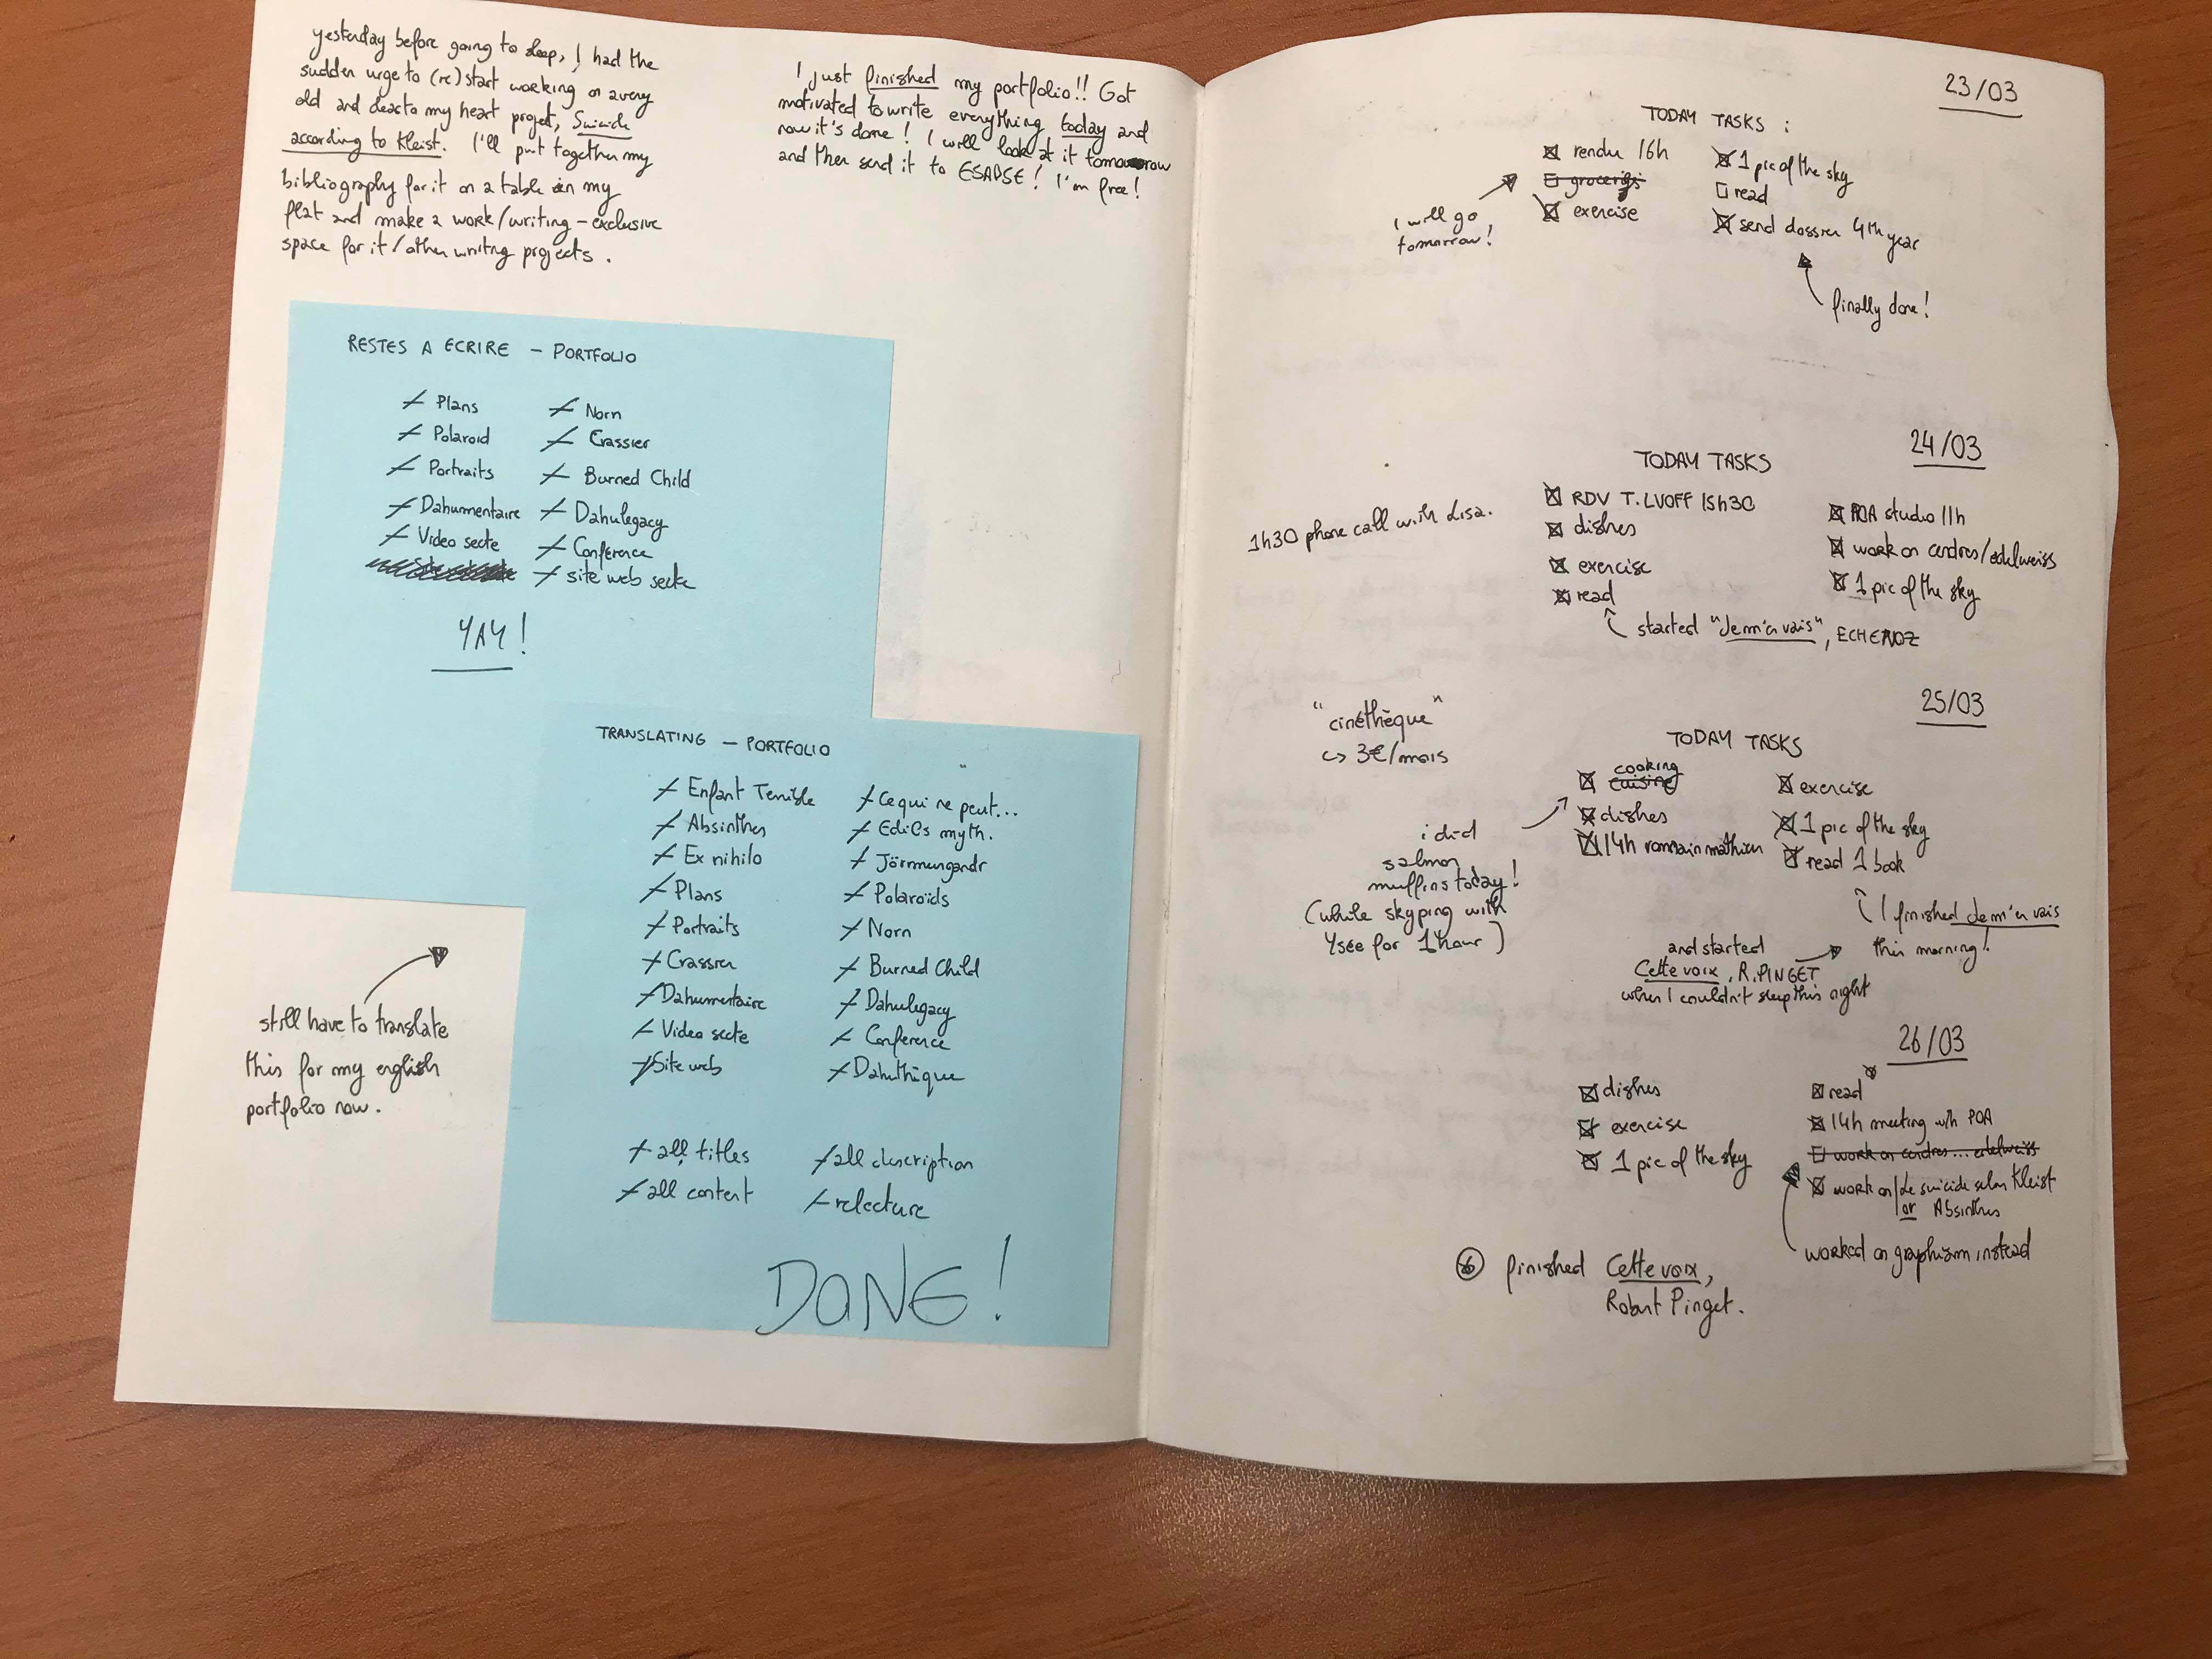 yesterday before going to sleep, I had the
sudden urge to (re)start working on a very
old and dear to my heart project, Suicide
according to Kleist. I'll put together my
bibliography for it on a table in my
flat and make a work/writing-exclusive
space for it/other writing projects.
I just finished my portfolio!! Got
motivated to write everything today and
now it's done! I will look at it tomorrow
and then send it to ESADSE! I'm free!
RESTES A ECRIRE - PORTFOLIO
Plans
Polaroid
Portraits
Dahumentaire
Video secte
Norn
Crassier
Burned Child
Dahulegacy
Conference
site web secte
YAY!
still have to translate
this for my english
portfolio now.
TRANSLATING - PORTFOLIO
Enfant Terrible
Absinthes
Ex nihilo
Plans
Portraits
Crassier
Dahumentaire
Video secte
Site web
Ce qui ne peut...
myth.
Jörmungandr
Polaroïds
Norn
Burned Child
Dahulegacy
Conference
Dahuthèque
all titles
all content
all description
relecture
DONE!
23/03
TODAY TASKS :
rendu 16h
groceries
exercise
1 pic of the sky
read
send dossier 4th year
I will go
tomorrow!
finally done!
24/03
TODAY TASKS
1h30 phone call with Lisa.
RDV T. LVOFF 15h30
dishes
exercise
read
studio 11h
work on cendres/edelweiss
1 pic of the sky
started "Je m'en vais", ECHENOZ
25/03
TODAY TASKS
"cinéthèque"
↳ 3€/mois
cooking
cuisine
dishes
14h romain mathieu
exercise
1 pic of the sky
read 1 book
i did
salmon
muffins today!
(while skyping with
Ysée for 1 hour)
I finished Je m'en vais
this morning!
and started
Cette voix, R. PINGET
when I couldn't sleep this night
26/03
dishes
exercise
1 pic of the sky
read
14h meeting with POA
work on cendres... edelweiss
work on Le suicide selon Kleist
or Absinthes
worked on graphism instead
finished Cette voix,
Robert Pinget.